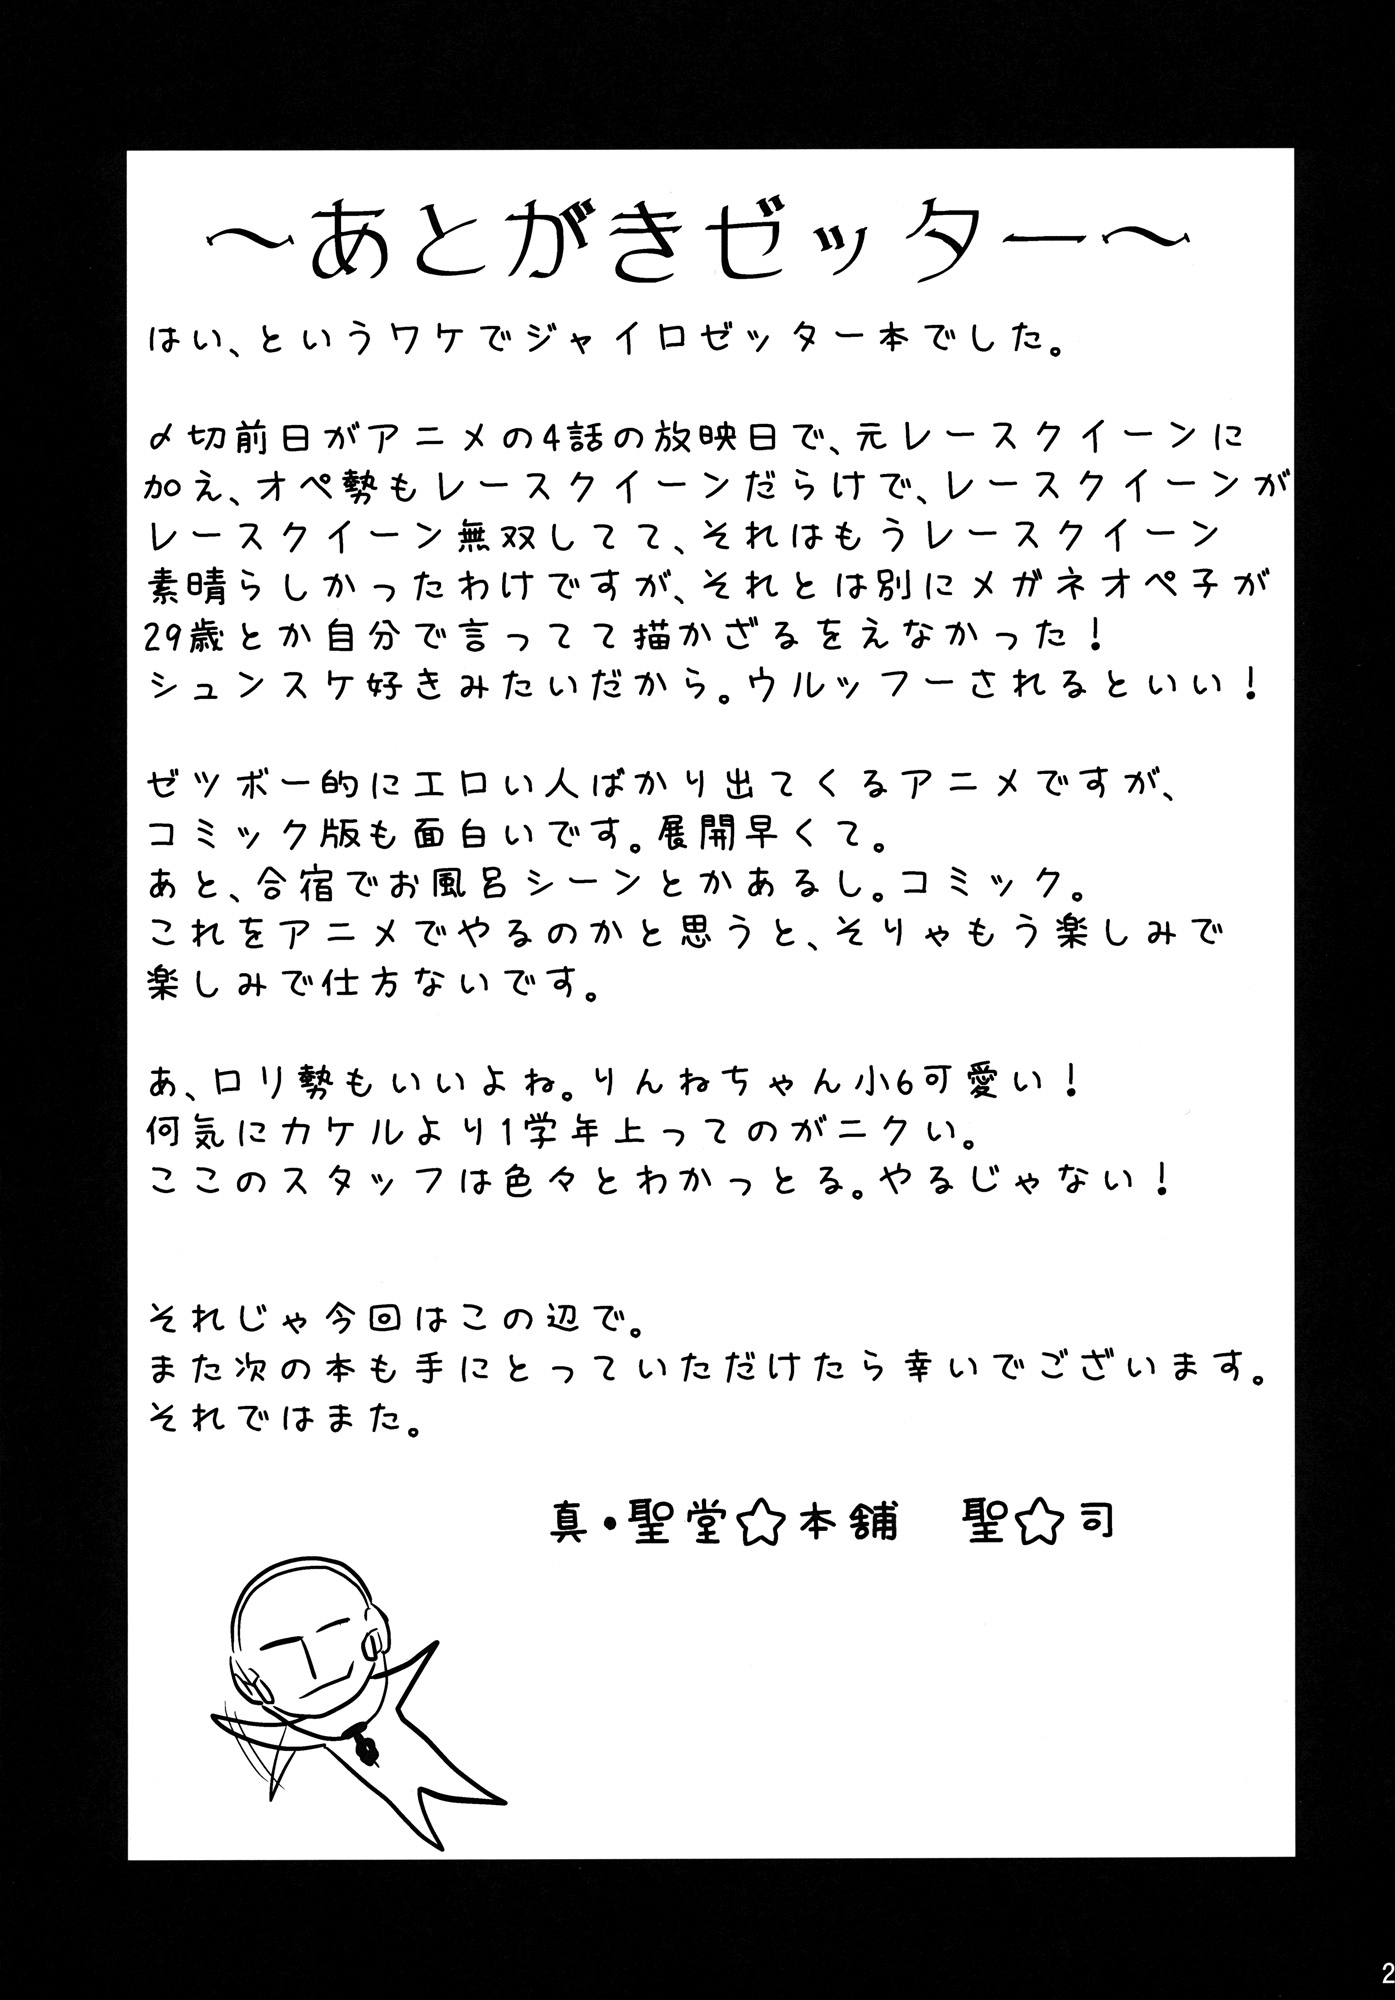 ～あとがきゼッター～
はい、というワケでジャイロゼッター本でした。
〆切前日がアニメの4話の放映日で、元レースクイーンに
加え、オペ勢もレースクイーンだらけで、レースクイーンが
レースクイーン無双してて、それはもうレースクイーン
素晴らしかったわけですが、それとは別にメガネオペ子が
29歳とか自分で言ってて描かざるをえなかった！
シュンスケ好きみたいだから。ウルッフーされるといい！
ゼツボー的にエロい人ばかり出てくるアニメですが、
コミック版も面白いです。展開早くて。
あと、合宿でお風呂シーンとかあるし。コミック。
これをアニメでやるのかと思うと、そりゃもう楽しみで
楽しみで仕方ないです。
あ、ロリ勢もいいよね。りんねちゃん小6可愛い！
何気にカケルより1学年上ってのがニクい。
ここのスタッフは色々とわかっとる。やるじゃない！
それじゃ今回はこの辺で。
また次の本も手にとっていただけたら幸いでございます。
それではまた。
真・聖堂☆本舗　聖☆司
2